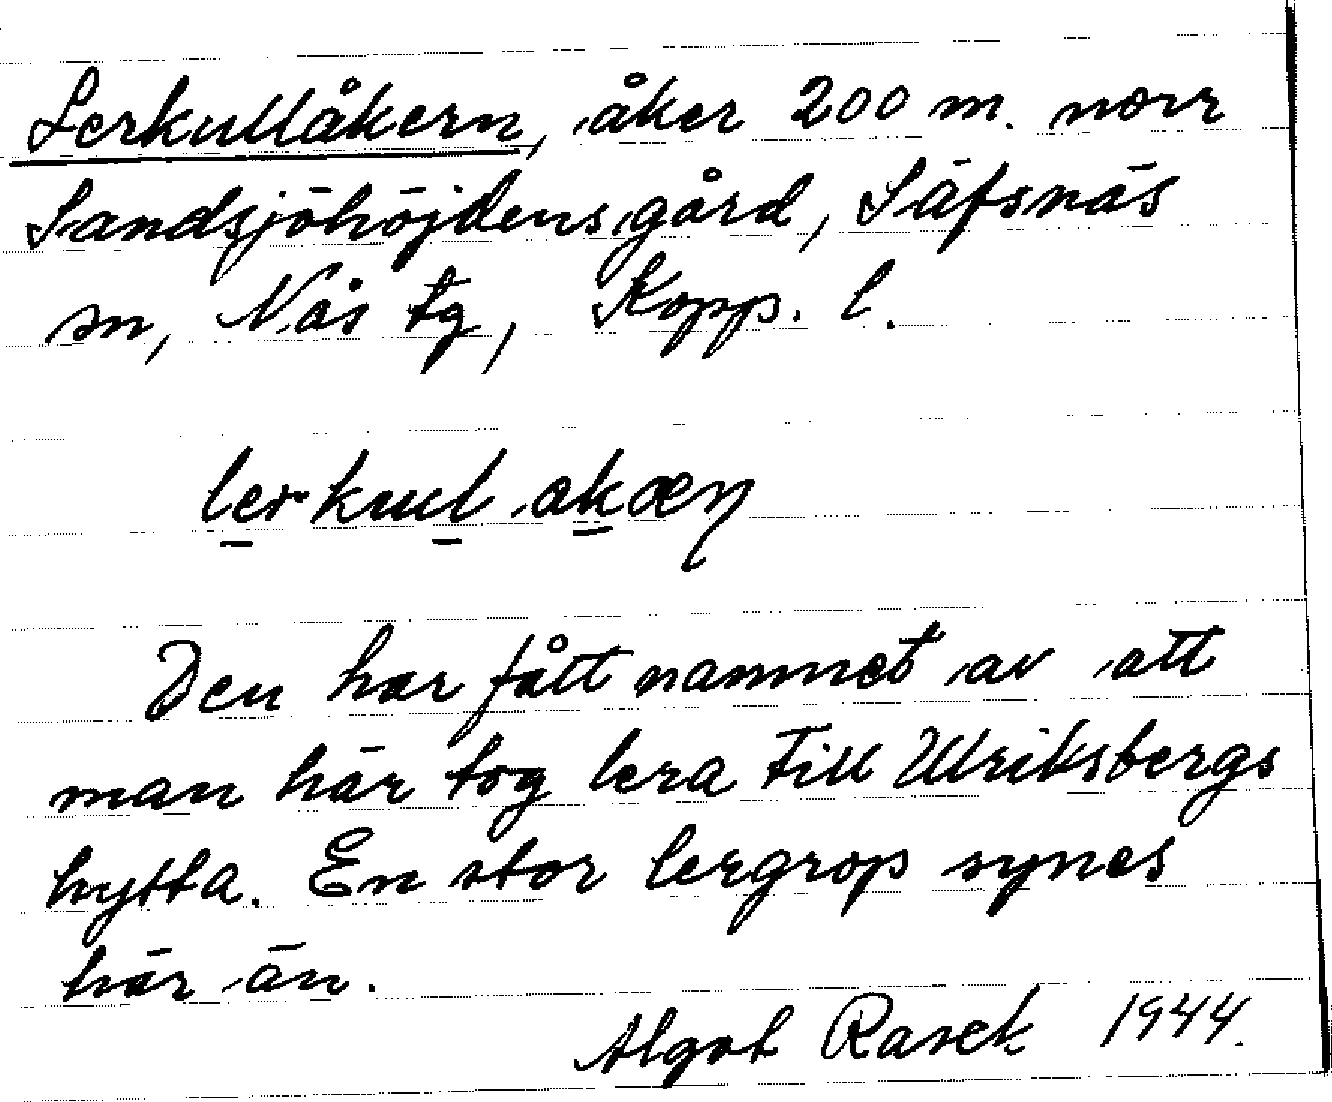 Lerkullåkern, åker 200 m. norr
Sandsjöhöjdens gård, Säfsnäs
sn, Nås tg, Kopp. l.
lerkul akæŋ
Den har fått namnet av att
man här tog lera till Ulriksbergs
hytta. En stor lergrop synes
här än.
Algot Rasek 1944.